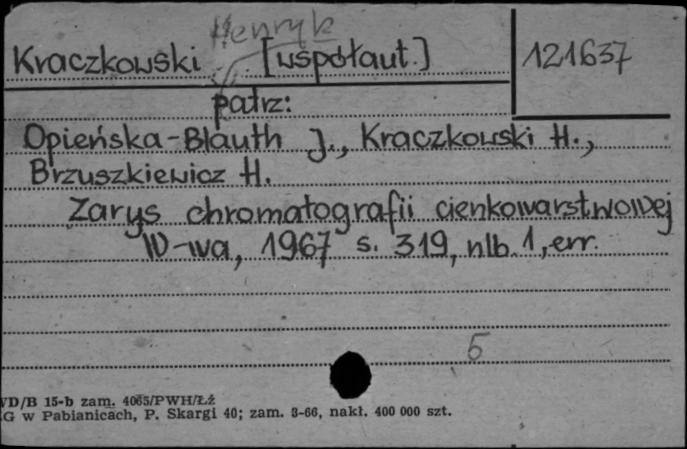 Henryk
Kraczkowski [współaut.] 121637
patrz:
Opieńska-Blauth J., Kraczkowski H.,
Brzuszkiewicz H.
Zarys chromatografii cienkowarstwowej
W-wa, 1967 s. 319, nlb. 1, err.
5
VD/B 15-b zam. 4065/PWH/Łź
ZG w Pabianicach, P. Skargi 40; zam. 3-66, nakł. 400 000 szt.